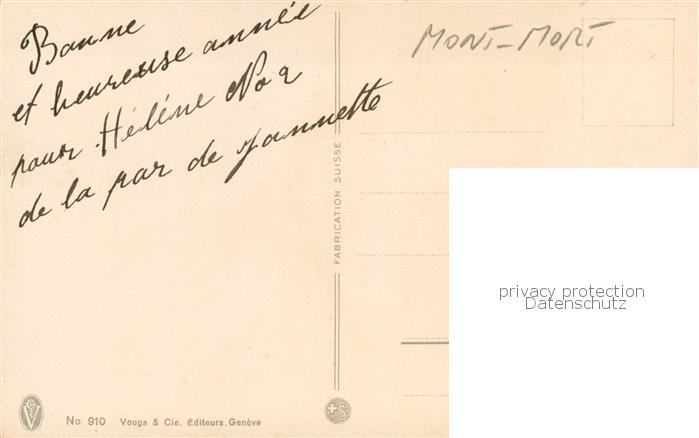 Bonne
et heureuse année
pour Hélène No 2
de la par de Jannette
MONT-MORT
FABRICATION SUISSE
privacy protection
Datenschutz
No. 910 Vouga & Cie. Éditeurs, Genève